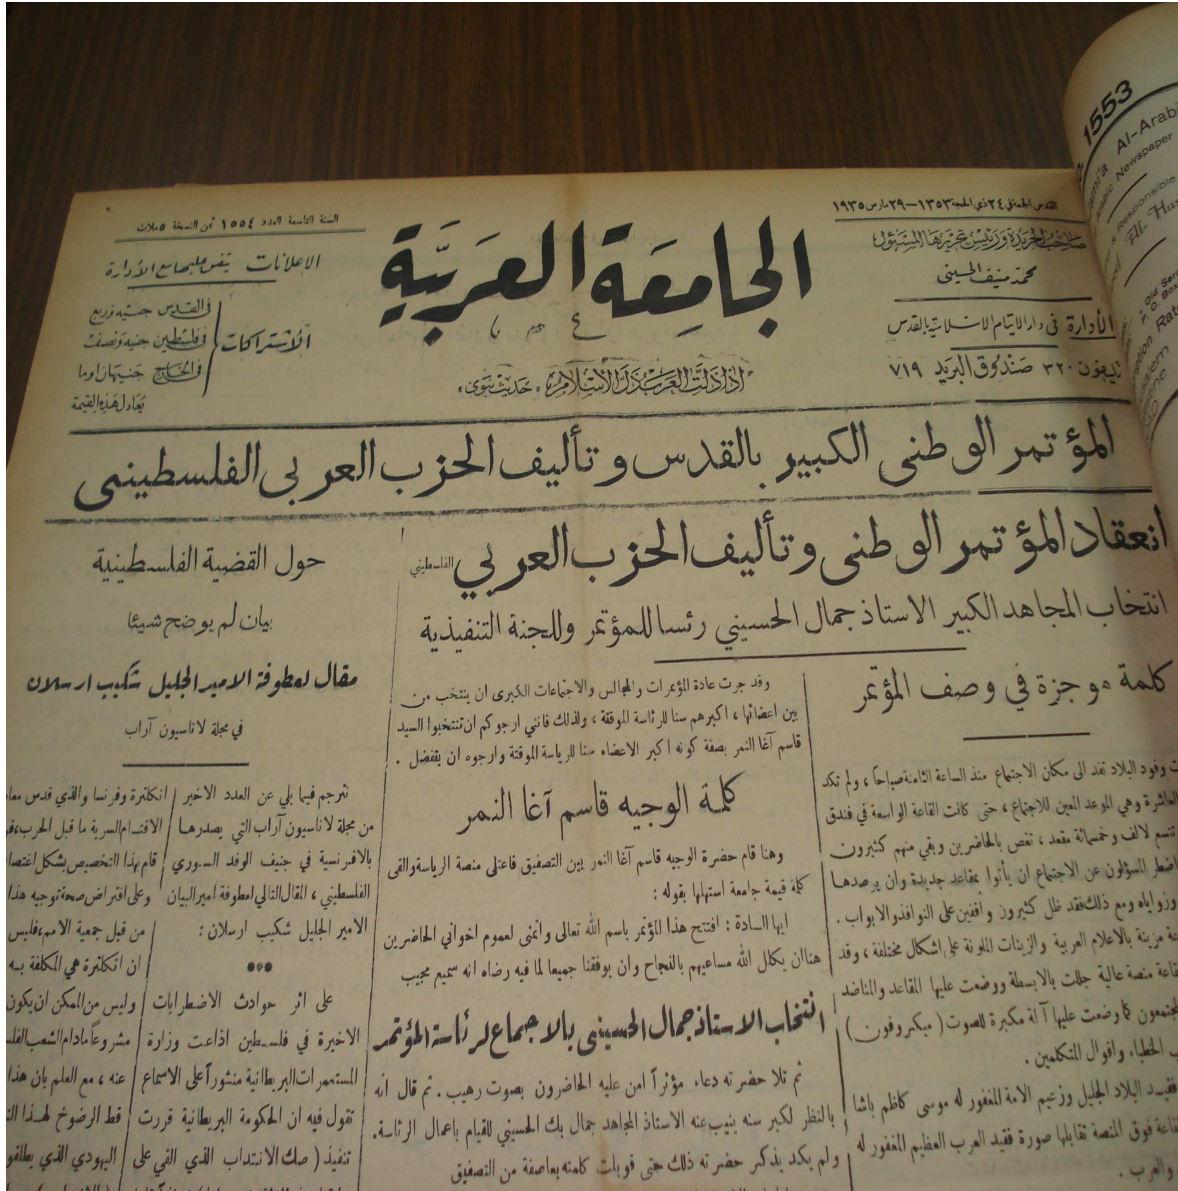 القدس الجمعة في ٢٤ ذي الحجة ١٣٥٣ — ٢٩ مارس ١٩٣٥
السنة التاسعة العدد ١٥٥٤ ثمن النسخة ٥ ملات
صاحب الجريدة ورئيس تحريرها المسئول
محمد منيف الحسيني
الأدارة في دار الايتام الاسلامية بالقدس
تليفون ٣٢٠ صندوق البريد ٧١٩
الجامعة العربية
«اذا ذلت العرب ذل الاسلام» «حديث نبوي»
الاعلانات يتفق عليها مع الأدارة
الأشتراكات
في القدس جنيه وربع
في فلسطين جنيه ونصف
في الخارج جنيهان او ما
يعادل هذه القيمة
1553
Al-Arabi
Arabic Newspaper
Responsible
المؤتمر الوطني الكبير بالقدس وتأليف الحزب العربي الفلسطيني
انعقاد المؤتمر الوطني وتأليف الحزب العربي الفلسطيني
انتخاب المجاهد الكبير الاستاذ جمال الحسيني رئسا للمؤتمر وللجنة التنفيذية
كلمة موجزة في وصف المؤتمر
وفود البلاد تفد الى مكان الاجتماع منذ الساعة الثامنة صباحاً ، ولم تكد
العاشرة وهي الموعد المعين للاجتماع ، حتى كانت القاعة الواسعة في فندق
تتسع لالف وخمسمائة مقعد ، تغص بالحاضرين وبقي منهم كثيرون
اضطر المسؤلون عن الاجتماع ان يأتوا بمقاعد جديدة وان يرصدها
وزواياه ومع ذلك فقد ظل كثيرون واقفين على النوافذ والابواب .
مزينة بالاعلام العربية والزينات الملونة على اشكال مختلفة ، وقد
منصة عالية جللت بالابسطة ووضعت عليها المقاعد والمناضد
المجتمعون كما وضعت عليها آلة مكبرة للصوت ( ميكروفون )
الخطباء واقوال المتكلمين .
فقيد البلاد الجليل وزعيم الامة المغفور له موسى كاظم باشا
فوق المنصة تقابلها صورة فقيد العرب العظيم المغفور له
والعرب .
وقد جرت عادة المؤتمرات والمجالس والاجتماعات الكبرى ان ينتخب من
بين اعضائها ، اكبرهم سنا للرئاسة الموقتة ، ولذلك فانني ارجوكم ان تنتخبوا السيد
قاسم آغا النمر بصفة كونه اكبر الاعضاء سنا للرياسة الموقتة وارجوه ان يتفضل .
كلمة الوجيه قاسم آغا النمر
وهنا قام حضرة الوجيه قاسم آغا النمر بين التصفيق فاعتلى منصة الرياسة والقى
كلمة قيمة جامعة استهلها بقوله :
ايها السادة : افتتح هذا المؤتمر باسم الله تعالى واتمنى لعموم اخواني الحاضرين
هنا ان يكلل الله مساعيهم بالنجاح وان يوفقنا جميعا لما فيه رضاه انه سميع مجيب
انتخاب الاستاذ جمال الحسيني بالاجماع لرئاسة المؤتمر
ثم تلا حضرته دعاء مؤثراً امن عليه الحاضرون بصوت رهيب . ثم قال انه
بالنظر لكبر سنه ينيب عنه الاستاذ المجاهد جمال بك الحسيني للقيام باعمال الرئاسة.
ولم يكد يذكر حضرته ذلك حتى قوبلت كلمته بعاصفة من التصفيق
حول القضية الفلسطينية
بيان لم يوضح شيئا
مقال لعطوفة الامير الجليل شكيب ارسلان
في مجلة لاناسيون آراب
نترجم فيما يلي عن العدد الاخير
من مجلة لاناسيون آراب التي يصدرها
بالافرنسية في جنيف الوفد السوري
الفلسطيني ، المقال التالي لعطوفة امير البيان
الامير الجليل شكيب ارسلان :
***
على اثر حوادث الاضطرابات
الاخيرة في فلسطين اذاعت وزارة
المستعمرات البريطانية منشوراً على الاسماع
تقول فيه ان الحكومة البريطانية قررت
تنفيذ ( صك الانتداب الذي القي على
انكلترة وفرنسا والذي قدس
الاقتسام السرية ما قبل الحرب،
قام بهذا التخصيص بشكل
وعلى افتراض صحة توجيه هذا
من قبل جمعية الامم، فليس
ان انكلترة هي المكلفة به
وليس من الممكن ان يكون
مشروعاً مادام الشعب
عنه ، مع العلم بان هذا
قط الرضوخ لهذا
اليهودي الذي